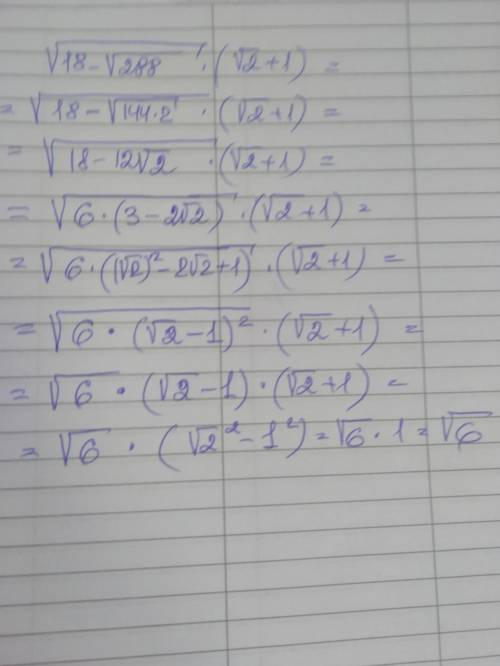 √(18-√288) · (√2+1) =
= √(18-√(144·2)) · (√2+1) =
= √(18-12√2) · (√2+1) =
= √(6·(3-2√2)) · (√2+1) =
= √(6·((√2)²-2√2+1)) · (√2+1) =
= √(6·(√2-1)²) · (√2+1) =
= √6 · (√2-1) · (√2+1) =
= √6 · (√2²-1²) = √6·1 = √6